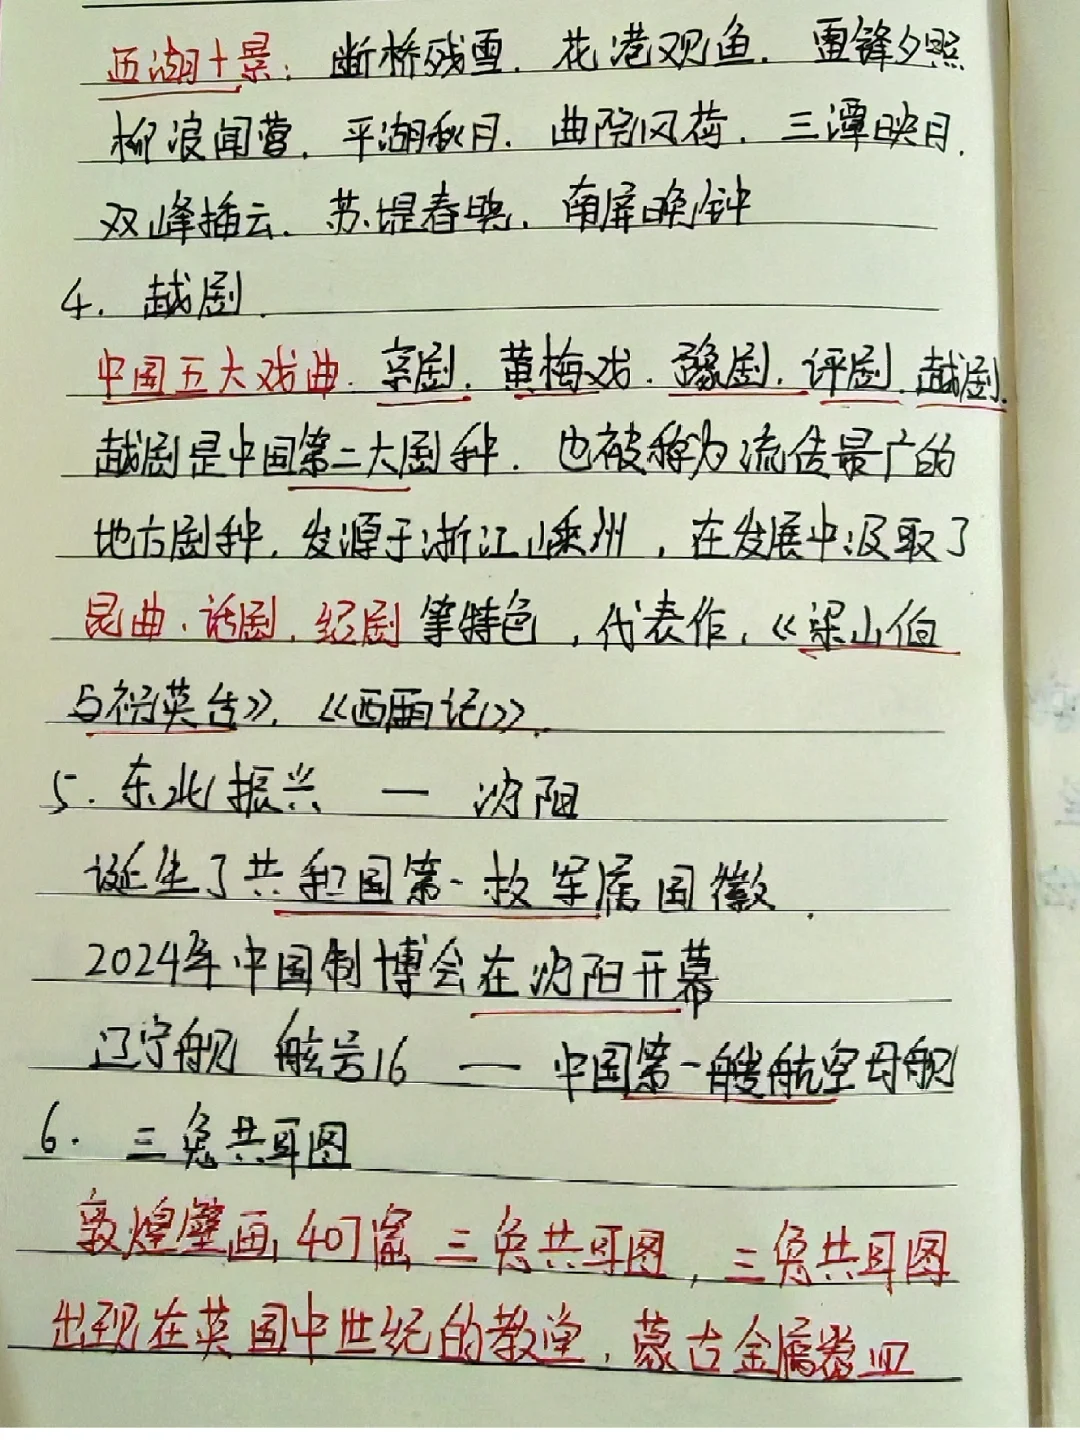 西湖十景：断桥残雪、花港观鱼、雷锋夕照
柳浪闻莺、平湖秋月、曲院风荷、三潭映月、
双峰插云、苏堤春晓、南屏晚钟
4. 越剧.
中国五大戏曲、京剧、黄梅戏、豫剧、评剧、越剧.
越剧是中国第二大剧种，也被称为流传最广的
地方剧种，发源于浙江嵊州，在发展中汲取了
昆曲、话剧、绍剧等特色，代表作，《梁山伯
与祝英台》，《西厢记》.
5. 东北振兴 — 沈阳
诞生了共和国第一枚军属国徽.
2024年中国制博会在沈阳开幕
辽宁舰 舷号16 — 中国第一艘航空母舰
6. 三兔共耳图
敦煌壁画，407窟 三兔共耳图，三兔共耳图
出现在英国中世纪的教堂，蒙古金属器皿